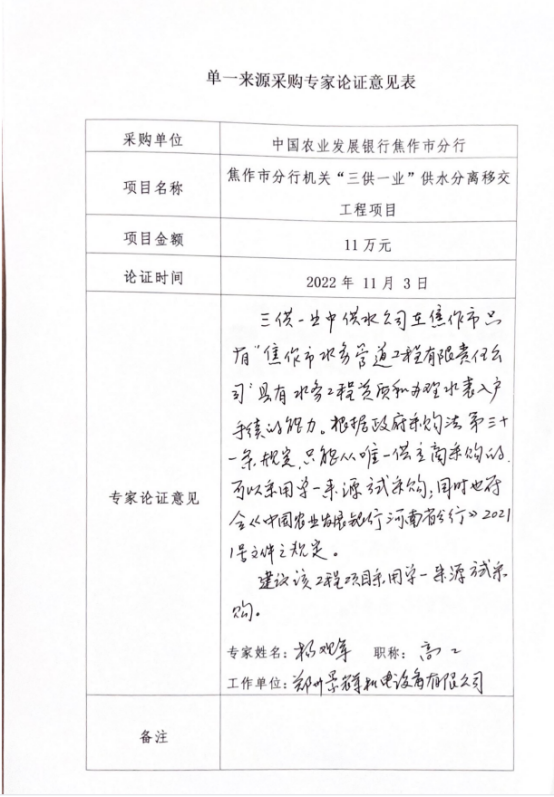 单一来源采购专家论证意见表
采购单位
中国农业发展银行焦作市分行
项目名称
焦作市分行机关“三供一业”供水分离移交
工程项目
项目金额
11万元
论证时间
2022 年 11 月 3 日
专家论证意见
三供一业中供水公司在焦作市只
有“焦作市水务管道工程有限责任公
司”具有水务工程资质和办理水表入户
手续的能力。根据政府采购法第三十
一条规定,只能从唯一供应商采购的,
可以采用单一来源式采购;同时也符
合《中国农业发展银行河南省分行》2021
1号文件之规定。
建议该工程项目采用单一来源式采
购。
专家姓名: 职称: 高工
工作单位: 郑州景辉机电设备有限公司
备注